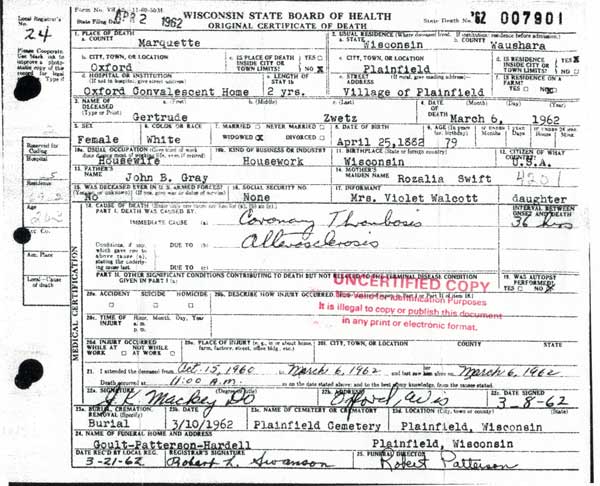 Local Registrar's No. 24
State Filing Date APR 2 1962
WISCONSIN STATE BOARD OF HEALTH
ORIGINAL CERTIFICATE OF DEATH
State Death No. '62 007901
1. PLACE OF DEATH
a. COUNTY Marquette
2. USUAL RESIDENCE (Where deceased lived. If institution: residence before admission)
a. STATE Wisconsin b. COUNTY Waushara
b. CITY, TOWN, OR LOCATION Oxford
c. IS PLACE OF DEATH INSIDE CITY OR TOWN LIMITS? YES NO X
c. CITY, TOWN, OR LOCATION Plainfield
d. IS RESIDENCE INSIDE CITY OR TOWN LIMITS? YES X NO
d. HOSPITAL OR INSTITUTION (If not in hospital, give street address) Oxford Convalescent Home
LENGTH OF STAY 2 yrs.
STREET ADDRESS Village of Plainfield
IS RESIDENCE ON A FARM? YES NO X
3. NAME OF DECEASED (Type or Print) a. (First) Gertrude b. (Middle) c. (Last) Zwetz
4. DATE OF DEATH (Month) (Day) (Year) March 6, 1962
5. SEX Female
6. COLOR OR RACE White
7. MARRIED NEVER MARRIED WIDOWED X DIVORCED
8. DATE OF BIRTH April 25, 1882
9. AGE (In years last birthday) 79
10a. USUAL OCCUPATION Housewife
10b. KIND OF BUSINESS OR INDUSTRY Housework
11. BIRTHPLACE (State or foreign country) Wisconsin
12. CITIZEN OF WHAT COUNTRY? U.S.A.
13. FATHER'S NAME John B. Gray
14. MOTHER'S MAIDEN NAME Rozalia Swift
4201
15. WAS DECEASED EVER IN U.S. ARMED FORCES? No
16. SOCIAL SECURITY NO. None
17. INFORMANT Mrs. Violet Walcott daughter
18. CAUSE OF DEATH
PART I. DEATH WAS CAUSED BY:
INTERVAL BETWEEN ONSET AND DEATH
IMMEDIATE CAUSE (a) Coronary Thrombosis 36 hrs
Conditions, if any, which gave rise to above cause (a), stating the underlying cause last.
DUE TO (b)
DUE TO (c)
PART II. OTHER SIGNIFICANT CONDITIONS CONTRIBUTING TO DEATH BUT NOT RELATED TO THE TERMINAL DISEASE CONDITION GIVEN IN PART I (a)
19. WAS AUTOPSY PERFORMED? YES NO X
UNCERTIFIED COPY
Not valid for Identification Purposes
It is illegal to copy or publish this document
in any print or electronic format.
MEDICAL CERTIFICATION
20a. ACCIDENT SUICIDE HOMICIDE
20b. DESCRIBE HOW INJURY OCCURRED
20c. TIME OF INJURY Hour, Month, Day, Year a.m. p.m.
20d. INJURY OCCURRED WHILE AT WORK NOT WHILE AT WORK
20e. PLACE OF INJURY (e.g., in or about home, farm, factory, street, office bldg., etc.)
20f. CITY, TOWN, OR LOCATION COUNTY STATE
21. I attended the deceased from Oct. 15, 1960 to March 6, 1962 and last saw alive on March 6, 1962
Death occurred at 11:00 A.m. on the date stated above; and to the best of my knowledge, from the causes stated.
22a. SIGNATURE (Degree or title) Mackey DO
22b. ADDRESS Oxford, Wis
22c. DATE SIGNED 3-8-62
23a. BURIAL, CREMATION, REMOVAL (Specify) Burial
23b. DATE 3/10/1962
23c. NAME OF CEMETERY OR CREMATORY Plainfield Cemetery
23d. LOCATION (City, town or county) (State) Plainfield, Wisconsin
24. NAME OF FUNERAL HOME AND ADDRESS
Goult-Patterson-Hardell Plainfield, Wisconsin
DATE REC'D BY LOCAL REG. 3-21-62
REGISTRAR'S SIGNATURE Robert L. Swanson
25. FUNERAL DIRECTOR Robert Patterson